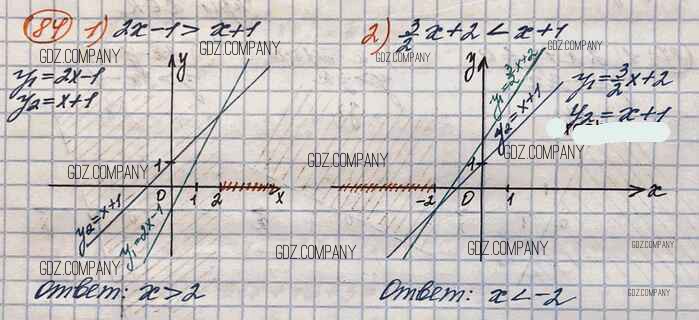 84 1) 2x-1 > x+1
2) 3/2 x+2 < x+1
GDZ.COMPANY
GDZ.COMPANY
GDZ.COMPANY
GDZ.COMPANY
y
y
y₁ = 2x-1
y₂ = x+1
y₁ = 3/2 x+2
y₂ = x+1
y₁ = 3/2 x+2
y₂ = x+1
GDZ.COMPANY
GDZ.COMPANY
GDZ.COMPANY
1
1
0 1 2 x
-2 0 1 x
y₂ = x+1
y₁ = 2x-1
GDZ.COMPANY
GDZ.COMPANY
GDZ.COMPANY
GDZ.COMPANY
Ответ: x > 2
Ответ: x < -2
GDZ.COMPANY